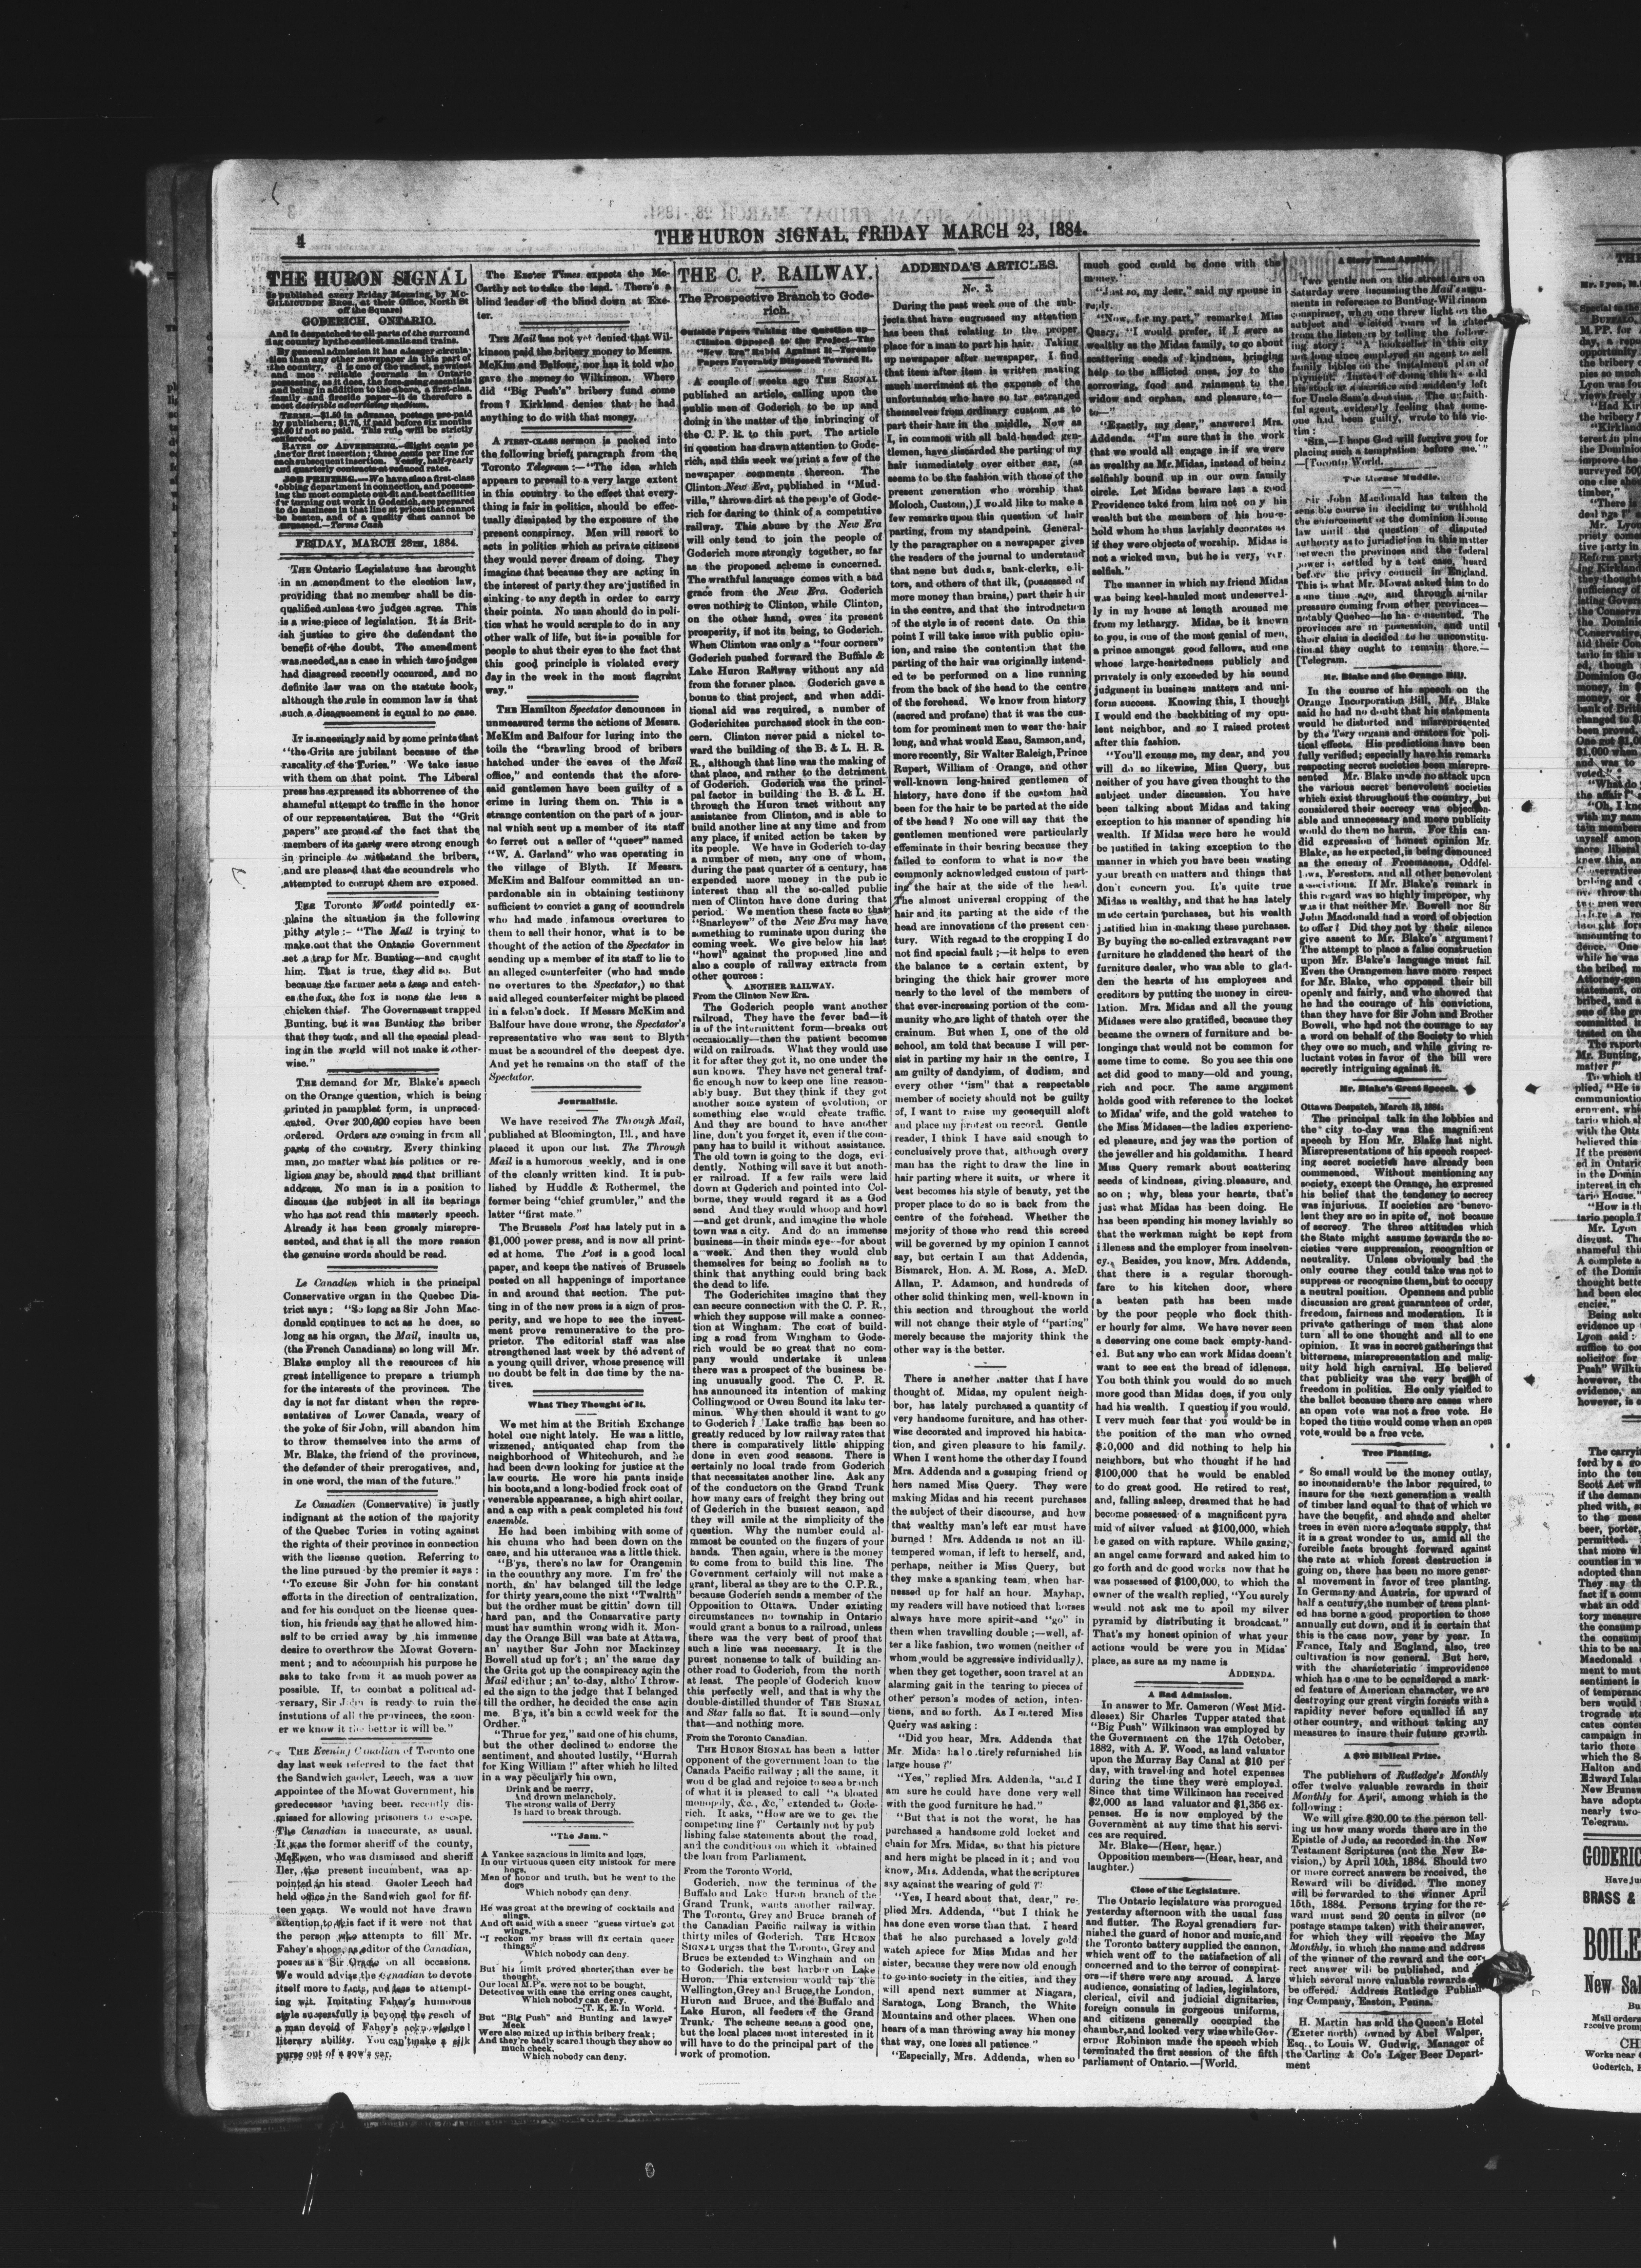 4
THE HURON SIGNAL, FRIDAY MARCH 23, 1884.
THE HURON SIGNAL
Is published every Friday Morning, by Mc-
GILLICUDDY BROS., at their Office, North St
off the Square)
GODERICH, ONTARIO.
And is despatched to all parts of the surround
ing country by the earliest mails and trains.
By general admission it has a larger circula-
tion than any other newspaper in this part of
family and fireside paper—it is therefore a
most desirable advertising medium.
TERMS.—$1.50 in advance, postage pre-paid
by publishers; $1.75, if paid before six months
$2.00 if not so paid. This rule will be strictly
enforced.
RATES OF ADVERTISING.—Eight cents pe
line for first insertion; three cents per line for
each subsequent insertion. Yearly, half-yearly
and quarterly contracts at reduced rates.
JOB PRINTING.—We have also a first-class
jobbing department in connection, and possess-
ing the most complete out-fit and best facilities
for turning out work in Goderich, are prepared
to do business in that line at prices that cannot
be beaten, and of a quality that cannot be
surpassed.—Terms Cash
FRIDAY, MARCH 28TH, 1884.
THE Ontario Legislature has brought
in an amendment to the election law,
providing that no member shall be dis-
qualified unless two judges agree. This
is a wise piece of legislation. It is Brit-
ish justice to give the defendant the
benefit of the doubt. The amendment
was needed, as a case in which two judges
had disagreed recently occurred, and no
definite law was on the statute book,
although the rule in common law is that
such a disagreement is equal to no case.
IT is sneeringly said by some prints that
"the Grits are jubilant because of the
rascality of the Tories." We take issue
with them on that point. The Liberal
press has expressed its abhorrence of the
shameful attempt to traffic in the honor
of our representatives. But the "Grit
papers" are proud of the fact that the
members of its party were strong enough
in principle to withstand the bribers,
and are pleased that the scoundrels who
attempted to corrupt them are exposed.
THE Toronto World pointedly ex-
plains the situation in the following
pithy style:- "The Mail is trying to
make out that the Ontario Government
set a trap for Mr. Bunting—and caught
him. That is true, they did so. But
because the farmer sets a trap and catch-
es the fox, the fox is none the less a
chicken thief. The Government trapped
Bunting, but it was Bunting the briber
that they took, and all the special plead-
ing in the world will not make it other-
wise."
THE demand for Mr. Blake's speech
on the Orange question, which is being
printed in pamphlet form, is unpreced-
ented. Over 200,000 copies have been
ordered. Orders are coming in from all
parts of the country. Every thinking
man, no matter what his politics or re-
ligion may be, should read that brilliant
address. No man is in a position to
discuss the subject in all its bearings
who has not read this masterly speech.
Already it has been grossly misrepre-
sented, and that is all the more reason
the genuine words should be read.
Le Canadien which is the principal
Conservative organ in the Quebec Dis-
trict says: "So long as Sir John Mac-
donald continues to act as he does, so
long as his organ, the Mail, insults us,
(the French Canadians) so long will Mr.
Blake employ all the resources of his
great intelligence to prepare a triumph
for the interests of the provinces. The
day is not far distant when the repre-
sentatives of Lower Canada, weary of
the yoke of Sir John, will abandon him
to throw themselves into the arms of
Mr. Blake, the friend of the provinces,
the defender of their prerogatives, and,
in one word, the man of the future."
Le Canadien (Conservative) is justly
indignant at the action of the majority
of the Quebec Tories in voting against
the rights of their province in connection
with the license quetion. Referring to
the line pursued by the premier it says:
"To excuse Sir John for his constant
efforts in the direction of centralization,
and for his conduct on the license ques-
tion, his friends say that he allowed him-
self to be carried away by his immense
desire to overthrow the Mowat Govern-
ment; and to accompish his purpose he
asks to take from it as much power as
possible. If, to combat a political ad-
versary, Sir John is ready to ruin the
instutions of all the provinces, the soon-
er we know it the better it will be."
THE Evening Canadian of Toronto one
day last week referred to the fact that
the Sandwich gaoler, Leech, was a new
appointee of the Mowat Government, his
predecessor having been recently dis-
missed for allowing prisoners to escape.
The Canadian is inaccurate, as usual.
It was the former sheriff of the county,
McEwen, who was dismissed and sheriff
Iler, the present incumbent, was ap-
pointed in his stead. Gaoler Leech had
held office in the Sandwich gaol for fif-
teen years. We would not have drawn
attention to this fact if it were not that
the person who attempts to fill Mr.
Fahey's shoes, as editor of the Canadian,
poses as a Sir Oracle on all occasions.
We would advise the Canadian to devote
itself more to facts, and less to attempt-
ing wit. Imitating Fahey's humorous
style sucessfully is beyond the reach of
a man devoid of Fahey's acknowledged
literary ability. You can't make a silk
purse out of a sow's ear.
The Exeter Times expects the Mc-
Carthy act to take the lead. There's a
blind leader of the blind down at Exe-
ter.
THE Mail has not yet denied that Wil-
kinson paid the bribery money to Messrs.
McKim and Balfour, nor has it told who
gave the money to Wilkinson. Where
did "Big Push's" bribery fund come
from? Kirkland denies that he had
anything to do with that money.
A FIRST-CLASS sermon is packed into
the following briefs paragraph from the
Toronto Telegram:—"The idea which
appears to prevail to a very large extent
in this country to the effect that every-
thing is fair in politics, should be effec-
tually dissipated by the exposure of the
present conspiracy. Men will resort to
acts in politics which as private citizens
they would never dream of doing. They
imagine that because they are acting in
the interest of party they are justified in
sinking to any depth in order to carry
their points. No man should do in poli-
tics what he would scruple to do in any
other walk of life, but it is possible for
people to shut their eyes to the fact that
this good principle is violated every
day in the week in the most flagrant
way."
THE Hamilton Spectator denounces in
unmeasured terms the actions of Messrs.
McKim and Balfour for luring into the
toils the "brawling brood of bribers
hatched under the eaves of the Mail
office," and contends that the afore-
said gentlemen have been guilty of a
crime in luring them on. This is a
strange contention on the part of a jour-
nal which sent up a member of its staff
to ferret out a seller of "queer" named
"W. A. Garland" who was operating in
the village of Blyth. If Messrs.
McKim and Balfour committed an un-
pardonable sin in obtaining testimony
sufficient to convict a gang of scoundrels
who had made infamous overtures to
them to sell their honor, what is to be
thought of the action of the Spectator in
sending up a member of its staff to lie to
an alleged counterfeiter (who had made
no overtures to the Spectator,) so that
said alleged counterfeiter might be placed
in a felon's dock. If Messrs McKim and
Balfour have done wrong, the Spectator's
representative who was sent to Blyth
must be a scoundrel of the deepest dye.
And yet he remains on the staff of the
Spectator.
Journalistic.
We have received The Through Mail,
published at Bloomington, Ill., and have
placed it upon our list. The Through
Mail is a humorous weekly, and is one
of the cleanly written kind. It is pub-
lished by Huddle & Rothermel, the
former being "chief grumbler," and the
latter "first mate."
The Brussels Post has lately put in a
$1,000 power press, and is now all print-
ed at home. The Post is a good local
paper, and keeps the natives of Brussels
posted on all happenings of importance
in and around that section. The put-
ting in of the new press is a sign of pros-
perity, and we hope to see the invest-
ment prove remunerative to the pro-
prietor. The editorial staff was also
strengthened last week by the advent of
a young quill driver, whose presence will
no doubt be felt in due time by the na-
tives.
What They Thought of It.
We met him at the British Exchange
hotel one night lately. He was a little,
wizzened, antiquated chap from the
neighborhood of Whitechurch, and he
had been down looking for justice at the
law courts. He wore his pants inside
his boots, and a long-bodied frock coat of
venerable appearance, a high shirt collar,
and a cap with a peak completed his tout
ensemble.
He had been imbibing with some of
his chums who had been down on the
case, and his utterance was a little thick.
"B'ys, there's no law for Orangemin
in the counthry any more. I'm fre' the
north, an' hav belanged till the ledge
for thirty years, come the nixt "Twalfth"
but the ordher must be gittin' down till
hard pan, and the Consarvative party
must hav sumthin wrong widh it. Mon-
day the Orange Bill was bate at Attawa,
an' nayther Sur John nor Mackinzey
Bowell stud up for't; an' the same day
the Grits got up the conspiracy agin the
Mail edither; an' to-day, altho' I throw-
ed the sign to the judge that I belanged
till the ordher, he decided the case agin
me. B'ys, it's bin a cowld week for the
Ordher."
"Thrue for yez," said one of his chums,
but the other declined to endorse the
sentiment, and shouted lustily, "Hurrah
for King William!" after which he lilted
in a way peculiarly his own,
Drink and be merry,
And drown melancholy,
The strong walls of Derry
Is hard to break through.
"The Jam."
A Yankee sagacious in limits and logs,
In our virtuous queen city mistook for mere
hogs,
Men of honor and truth, but he went to the
dogs
Which nobody can deny.
He was great at the brewing of cocktails and
slings.
And oft said with a sneer "guess virtue's got
wings,
"I reckon my brass will fix certain queer
things."
Which nobody can deny.
But his limit proved shorter than ever he
thought,
Our local M.P's. were not to be bought,
Detectives with ease the erring ones caught,
Which nobody can deny.
—[T. K. E. in World.
But "Big Push" and Bunting and lawyer
Meek
Were also mixed up in this bribery freak;
And they're badly scared though they show so
much cheek.
Which nobody can deny.
THE C. P. RAILWAY.
The Prospective Branch to Gode-
rich.
Outside Papers Taking the Question up—
Clinton Opposed to the Project—The
"New Era" Rabid Against It—Toronto
Papers Favorably Disposed Toward It.
A couple of weeks ago THE SIGNAL
published an article, calling upon the
public men of Goderich to be up and
doing in the matter of the inbringing of
the C. P. R. to this port. The article
in question has drawn attention to Gode-
rich, and this week we print a few of the
newspaper comments thereon. The
Clinton New Era, published in "Mud-
ville," throws dirt at the people of Gode-
rich for daring to think of a competitive
railway. This abuse by the New Era
will only tend to join the people of
Goderich more strongly together, so far
as the proposed scheme is concerned.
The wrathful language comes with a bad
grace from the New Era. Goderich
owes nothing to Clinton, while Clinton,
on the other hand, owes its present
prosperity, if not its being, to Goderich.
When Clinton was only a "four corners"
Goderich pushed forward the Buffalo &
Lake Huron Railway without any aid
from the former place. Goderich gave a
bonus to that project, and when addi-
tional aid was required, a number of
Goderichites purchased stock in the con-
cern. Clinton never paid a nickel to-
ward the building of the B. & L. H. R.
R., although that line was the making of
that place, and rather to the detriment
of Goderich. Goderich was the princi-
pal factor in building the B. & L. H.
through the Huron tract without any
assistance from Clinton, and is able to
build another line at any time and from
any place, if united action be taken by
its people. We have in Goderich to-day
a number of men, any one of whom,
during the past quarter of a century, has
expended more money in the public
interest than all the so-called public
men of Clinton have done during that
period. We mention these facts so that
"Snarleyew" of the New Era may have
something to ruminate upon during the
coming week. We give below his last
"howl" against the proposed line and
also a couple of railway extracts from
other sources:
ANOTHER RAILWAY.
From the Clinton New Era.
The Goderich people want another
railroad, They have the fever bad—it
is of the intermittent form—breaks out
occasionally—then the patient becomes
wild on railroads. What they would use
it for after they got it, no one under the
sun knows. They have not general traf-
fic enough now to keep one line reason-
ably busy. But they think if they got
another some system of evolution, or
something else would create traffic.
And they are bound to have another
line, don't you forget it, even if the com-
pany has to build it without assistance.
The old town is going to the dogs, evi-
dently. Nothing will save it but anoth-
er railroad. If a few rails were laid
down at Goderich and pointed into Col-
borne, they would regard it as a God
send And they would whoop and howl
—and get drunk, and imagine the whole
town was a city. And do an immense
business—in their minds eye—for about
a week. And then they would club
themselves for being so foolish as to
think that anything could bring back
the dead to life.
The Goderichites imagine that they
can secure connection with the C. P. R.,
which they suppose will make a connec-
tion at Wingham. The cost of build-
ing a road from Wingham to Gode-
rich would be so great that no com-
pany would undertake it unless
there was a prospect of the business be-
ing unusually good. The C. P. R.
has announced its intention of making
Collingwood or Owen Sound its lake ter-
minus. Why then should it want to go
to Goderich? Lake traffic has been so
greatly reduced by low railway rates that
there is comparatively little shipping
done in even good seasons. There is
certainly no local trade from Goderich
that necessitates another line. Ask any
of the conductors on the Grand Trunk
how many cars of freight they bring out
of Goderich in the busiest season, and
they will smile at the simplicity of the
question. Why the number could al-
mmost be counted on the fingers of your
hands. Then again, where is the money
to come from to build this line. The
Government certainly will not make a
grant, liberal as they are to the C.P.R.,
because Goderich sends a member of the
Opposition to Ottawa. Under existing
circumstances no township in Ontario
would grant a bonus to a railroad, unless
there was the very best of proof that
such a line was necessary. It is the
purest nonsense to talk of building an-
other road to Goderich, from the north
at least. The people of Goderich know
this perfectly well, and that is why the
double-distilled thunder of THE SIGNAL
and Star falls so flat. It is sound—only
that—and nothing more.
From the Toronto Canadian.
THE HURON SIGNAL has been a bitter
opponent of the government loan to the
Canada Pacific railway; all the same, it
would be glad and rejoice to see a branch
of what it is pleased to call "a bloated
monopoly, &c., &c.," extended to Gode-
rich. It asks, "How are we to get the
competing line?" Certainly not by pub
lishing false statements about the road,
and the conditions on which it obtained
the loan from Parliament.
From the Toronto World.
Goderich, now the terminus of the
Buffalo and Lake Huron branch of the
Grand Trunk, wants another railway.
The Toronto, Grey and Bruce branch of
the Canadian Pacific railway is within
thirty miles of Goderich. THE HURON
SIGNAL urges that the Toronto, Grey and
Bruce be extended to Wingham and on
to Goderich, the best harbor on Lake
Huron. This extension would tap the
Wellington, Grey and Bruce, the London,
Huron and Bruce, and the Buffalo and
Lake Huron, all feeders of the Grand
Trunk. The scheme seems a good one,
but the local places most interested in it
will have to do the principal part of the
work of promotion.
ADDENDA'S ARTICLES.
No. 3.
During the past week one of the sub-
jects that have engrossed my attention
has been that relating to the proper
place for a man to part his hair. Taking
up newspaper after newspaper, I find
that item after item is written making
much merriment at the expense of the
unfortunates who have so far estranged
themselves from ordinary custom as to
part their hair in the middle. Now as
I, in common with all bald-headed gen-
tlemen, have discarded the parting of my
hair immediately over either ear, (as
seems to be the fashion with those of the
present generation who worship that
Moloch, Custom,) I would like to make a
few remarks upon this question of hair
parting, from my standpoint. General-
ly the paragrapher on a newspaper gives
the readers of the journal to understand
that none but dudes, bank-clerks, edi-
tors, and others of that ilk, (possessed of
more money than brains,) part their hair
in the centre, and that the introduction
of the style is of recent date. On this
point I will take issue with public opin-
ion, and raise the contention that the
parting of the hair was originally intend-
ed to be performed on a line running
from the back of the head to the centre
of the forehead. We know from history
(sacred and profane) that it was the cus-
tom for prominent men to wear the hair
long, and what would Esau, Samson, and,
more recently, Sir Walter Raleigh, Prince
Rupert, William of Orange, and other
well-known long-haired gentlemen of
history, have done if the custom had
been for the hair to be parted at the side
of the head? No one will say that the
gentlemen mentioned were particularly
effeminate in their bearing because they
failed to conform to what is now the
commonly acknowledged custom of part-
ing the hair at the side of the head.
The almost universal cropping of the
hair and its parting at the side of the
head are innovations of the present cen-
tury. With regard to the cropping I do
not find special fault;—it helps to even
the balance to a certain extent, by
bringing the thick hair grower more
nearly to the level of the members of
that ever-increasing portion of the com-
munity who are light of thatch over the
crainum. But when I, one of the old
school, am told that because I will per-
sist in parting my hair in the centre, I
am guilty of dandyism, of dudism, and
every other "ism" that a respectable
member of society should not be guilty
of, I want to raise my goosequill aloft
and place my protest on record. Gentle
reader, I think I have said enough to
conclusively prove that, although every
man has the right to draw the line in
hair parting where it suits, or where it
best becomes his style of beauty, yet the
proper place to do so is back from the
centre of the forehead. Whether the
majority of those who read this screed
will be governed by my opinion I cannot
say, but certain I am that Addenda,
Bismarck, Hon. A. M. Ross, A. McD.
Allan, P. Adamson, and hundreds of
other solid thinking men, well-known in
this section and throughout the world
will not change their style of "parting"
merely because the majority think the
other way is the better.
There is another matter that I have
thought of. Midas, my opulent neigh-
bor, has lately purchased a quantity of
very handsome furniture, and has other-
wise decorated and improved his habita-
tion, and given pleasure to his family.
When I went home the other day I found
Mrs. Addenda and a gossiping friend of
hers named Miss Query. They were
making Midas and his recent purchases
the subject of their discourse, and how
that wealthy man's left ear must have
burned! Mrs. Addenda is not an ill-
tempered woman, if left to herself, and,
perhaps, neither is Miss Query, but
they make a spanking team when har-
nessed up for half an hour. Mayhap,
my readers will have noticed that horses
always have more spirit—and "go" in
them when travelling double;—well, af-
ter a like fashion, two women (neither of
whom would be aggressive individually),
when they get together, soon travel at an
alarming gait in the tearing to pieces of
other person's modes of action, inten-
tions, and so forth. As I entered Miss
Query was asking:
"Did you hear, Mrs. Addenda that
Mr. Midas had entirely refurnished his
large house?"
"Yes," replied Mrs. Addenda, "and I
am sure he could have done very well
with the good furniture he had."
"But that is not the worst, he has
purchased a handsome gold locket and
chain for Mrs. Midas, so that his picture
and hers might be placed in it; and you
know, Mrs. Addenda, what the scriptures
say against the wearing of gold?"
"Yes, I heard about that, dear," re-
plied Mrs. Addenda, "but I think he
has done even worse than that. I heard
that he also purchased a lovely gold
watch apiece for Miss Midas and her
sister, because they were now old enough
to go into society in the cities, and they
will spend next summer at Niagara,
Saratoga, Long Branch, the White
Mountains and other places. When one
hears of a man throwing away his money
that way, one loses all patience"
"Especially, Mrs. Addenda, when so
much good could be done with the
money."
"Just so, my dear," said my spouse in
reply.
"Now, for my part," remarked Miss
Query, "I would prefer, if I were as
wealthy as the Midas family, to go about
scattering seeds of kindness, bringing
help to the afflicted ones, joy to the
sorrowing, food and rainment to the
widow and orphan, and pleasure to—
to—"
"Exactly, my dear," answered Mrs.
Addenda. "I'm sure that is the work
that we would all engage in if we were
as wealthy as Mr. Midas, instead of being
selfishly bound up in our own family
circle. Let Midas beware less a good
Providence take from him not only his
wealth but the members of his house-
hold whom he thus lavishly decorates as
if they were objects of worship. Midas is
not a wicked man, but he is very, very
selfish."
The manner in which my friend Midas
was being keel-hauled most undeserved-
ly in my house at length aroused me
from my lethargy. Midas, be it known
to you, is one of the most genial of men,
a prince amongst good fellows, and one
whose large-heartedness publicly and
privately is only exceeded by his sound
judgment in business matters and uni-
form success. Knowing this, I thought
I would end the backbiting of my opu-
lent neighbor, and so I raised protest
after this fashion.
"You'll excuse me, my dear, and you
will do so likewise, Miss Query, but
neither of you have given thought to the
subject under discussion. You have
been talking about Midas and taking
exception to his manner of spending his
wealth. If Midas were here he would
be justified in taking exception to the
manner in which you have been wasting
your breath on matters and things that
don't concern you. It's quite true
Midas is wealthy, and that he has lately
made certain purchases, but his wealth
justified him in making these purchases.
By buying the so-called extravagant new
furniture he gladdened the heart of the
furniture dealer, who was able to glad-
den the hearts of his employees and
creditors by putting the money in circu-
lation. Mrs. Midas and all the young
Midases were also gratified, because they
became the owners of furniture and be-
longings that would not be common for
some time to come. So you see this one
act did good to many—old and young,
rich and poor. The same argument
holds good with reference to the locket
to Midas' wife, and the gold watches to
the Miss Midases—the ladies experienc-
ed pleasure, and joy was the portion of
the jeweller and his goldsmiths. I heard
Miss Query remark about scattering
seeds of kindness, giving pleasure, and
so on; why, bless your hearts, that's
just what Midas has been doing. He
has been spending his money lavishly so
that the workman might be kept from
idleness and the employer from insolven-
cy. Besides, you know, Mrs. Addenda,
that there is a regular thorough-
fare to his kitchen door, where
a beaten path has been made
by the poor people who flock thith-
er hourly for alms. We have never seen
a deserving one come back empty-hand-
ed. But any who can work Midas doesn't
want to see eat the bread of idleness.
You both think you would do so much
more good than Midas does, if you only
had his wealth. I question if you would.
I very much fear that you would be in
the position of the man who owned
$10,000 and did nothing to help his
neighbors, but who thought if he had
$100,000 that he would be enabled
to do great good. He retired to rest,
and, falling asleep, dreamed that he had
become possessed of a magnificent pyra
mid of silver valued at $100,000, which
he gazed on with rapture. While gazing,
an angel came forward and asked him to
go forth and do good works now that he
was possessed of $100,000, to which the
owner of the wealth replied, "You surely
would not ask me to spoil my silver
pyramid by distributing it broadcast."
That's my honest opinion of what your
actions would be were you in Midas'
place, as sure as my name is
ADDENDA.
A Bad Admission.
In answer to Mr. Cameron (West Mid-
dlesex) Sir Charles Tupper stated that
"Big Push" Wilkinson was employed by
the Government on the 17th October,
1882, with A. F. Wood, as land valuator
upon the Murray Bay Canal at $10 per
day, with traveling and hotel expenses
during the time they were employed.
Since that time Wilkinson has received
$2,000 as land valuator and $1,356 ex-
penses. He is now employed by the
Government at any time that his servi-
ces are required.
Mr. Blake—(Hear, hear.)
Opposition members—(Hear, hear, and
laughter.)
Close of the Legislature.
The Ontario legislature was prorogued
yesterday afternoon with the usual fuss
and flutter. The Royal grenadiers fur-
nished the guard of honor and music, and
the Toronto battery supplied the cannon,
which went off to the satisfaction of all
concerned and to the terror of conspirat-
ors—if there were any around. A large
audience, consisting of ladies, legislators,
clerical, civil and judicial dignitaries,
foreign consuls in gorgeous uniforms,
and citizens generally occupied the
chamber, and looked very wise while Gov-
ernor Robinson made the speech which
terminated the first session of the fifth
parliament of Ontario.—[World.
A Story That Applies.
Two gentlemen on the street cars on
Saturday were discussing the Mail's argu-
ments in reference to Bunting-Wilkinson
conspiracy, when one threw light on the
subject and elicited roars of laughter
from the listeners by telling the follow-
ing story: "A bookseller in this city
not long since employed an agent to sell
family bibles on the instalment plan of
payment. Instead of doing this he sold
his stock at a sacrifice and suddenly left
for Uncle Sam's domains. The unfaith-
ful agent, evidently feeling that some-
one had been guilty, wrote to his vic-
tim:
"Sir,—I hope God will forgive you for
placing such a temptation before me."
—[Toronto World.
The License Muddle.
Sir John Macdonald has taken the
sensible course in deciding to withhold
the enforcement of the dominion license
law until the question of disputed
authority as to jurisdiction in this matter
between the provinces and the federal
power is settled by a test case, heard
before the privy council in England.
This is what Mr. Mowat asked him to do
some time ago, and through similar
pressure coming from other provinces—
notably Quebec—he has consented. The
provinces are in possession, and until
their claim is decided to be unconstitu-
tional they ought to remain there.—
[Telegram.
Mr. Blake and the Orange Bill.
In the course of his speech on the
Orange Incorporation Bill, Mr. Blake
said he had no doubt that his statements
would be distorted and misrepresented
by the Tory organs and orators for poli-
tical effects. His predictions have been
fully verified; especially have his remarks
respecting secret societies been misrepre-
sented Mr. Blake made no attack upon
the various secret benevolent societies
which exist throughout the country, but
considered their secrecy was objection-
able and unnecessary and mere publicity
would do them no harm. For this can-
did expression of honest opinion Mr.
Blake, as he expected, is being denounced
as the enemy of Freemasons, Oddfel-
lows, Foresters, and all other benevolent
associations. If Mr. Blake's remark in
this regard was so highly improper, why
was it that neither Mr. Bowell nor Sir
John Macdonald had a word of objection
to offer? Did they not by their silence
give assent to Mr. Blake's argument?
The attempt to place a false construction
upon Mr. Blake's language must fail.
Even the Orangemen have more respect
for Mr. Blake, who opposed their bill
openly and fairly, and who showed that
he had the courage of his convictions,
than they have for Sir John and Brother
Bowell, who had not the courage to say
a word on behalf of the Society to which
they owe so much, and while giving re-
luctant votes in favor of the bill were
secretly intriguing against it.
Mr. Blake's Great Speech.
Ottawa Despatch, March 18, 1884:
The principal talk in the lobbies and
the city to-day was the magnificent
speech by Hon Mr. Blake last night.
Misrepresentations of his speech respect-
ing secret societies have already been
commenced. Without mentioning any
society, except the Orange, he expressed
his belief that the tendency to secrecy
was injurious. If societies are benevo-
lent they are so in spite of, not because
of secrecy. The three attitudes which
the State might assume towards the so-
cieties were suppression, recognition or
neutrality. Unless obviously bad the
only course they could take was not to
suppress or recognise them, but to occupy
a neutral position. Openness and public
discussion are great guarantees of order,
freedom, fairness and moderation. It is
private gatherings of men that alone
turn all to one thought and all to one
opinion. It was in secret gatherings that
bitterness, misrepresentation and malig-
nity hold high carnival. He believed
that publicity was the very breath of
freedom in politics. He only yielded to
the ballot because there are cases where
an open vote was not a free vote. He
hoped the time would come when an open
vote would be a free vote.
Tree Planting.
So small would be the money outlay,
so inconsiderable the labor required, to
insure for the next generation a wealth
of timber land equal to that of which we
have the benefit, and shade and shelter
trees in even more adequate supply, that
it is a great wonder to us, amid all the
forcible facts brought forward against
the rate at which forest destruction is
going on, there has been no more gener-
al movement in favor of tree planting.
In Germany and Austria, for upward of
half a century, the number of trees plant-
ed has borne a good proportion to those
annually cut down, and it is certain that
this is the case now, year by year. In
France, Italy and England, also, tree
cultivation is now general. But here,
with the characteristic improvidence
which has come to be considered a mark-
ed feature of American character, we are
destroying our great virgin forests with a
rapidity never before equalled in any
other country, and without taking any
measures to insure their future growth.
A $20 Biblical Prize.
The publishers of Rutledge's Monthly
offer twelve valuable rewards in their
Monthly for April, among which is the
following:
We will give $20.00 to the person tell-
ing us how many words there are in the
Epistle of Jude, as recorded in the New
Testament Scriptures (not the New Re-
vision,) by April 10th, 1884. Should two
or more correct answers be received, the
Reward will be divided. The money
will be forwarded to the winner April
15th, 1884. Persons trying for the re-
ward must send 20 cents in silver (no
postage stamps taken) with their answer,
for which they will receive the May
Monthly, in which the name and address
of the winner of the reward and the cor-
rect answer will be published, and
which several more valuable rewards
be offered. Address Rutledge Publish
ing Company, Easton, Penna.
H. Martin has sold the Queen's Hotel
(Exeter north) owned by Abel Walper,
Esq., to Louis W. Gudwig, Manager of
the Carling & Co's Lager Beer Depart-
ment
GODERIC
BRASS &
BOILE
New Sal